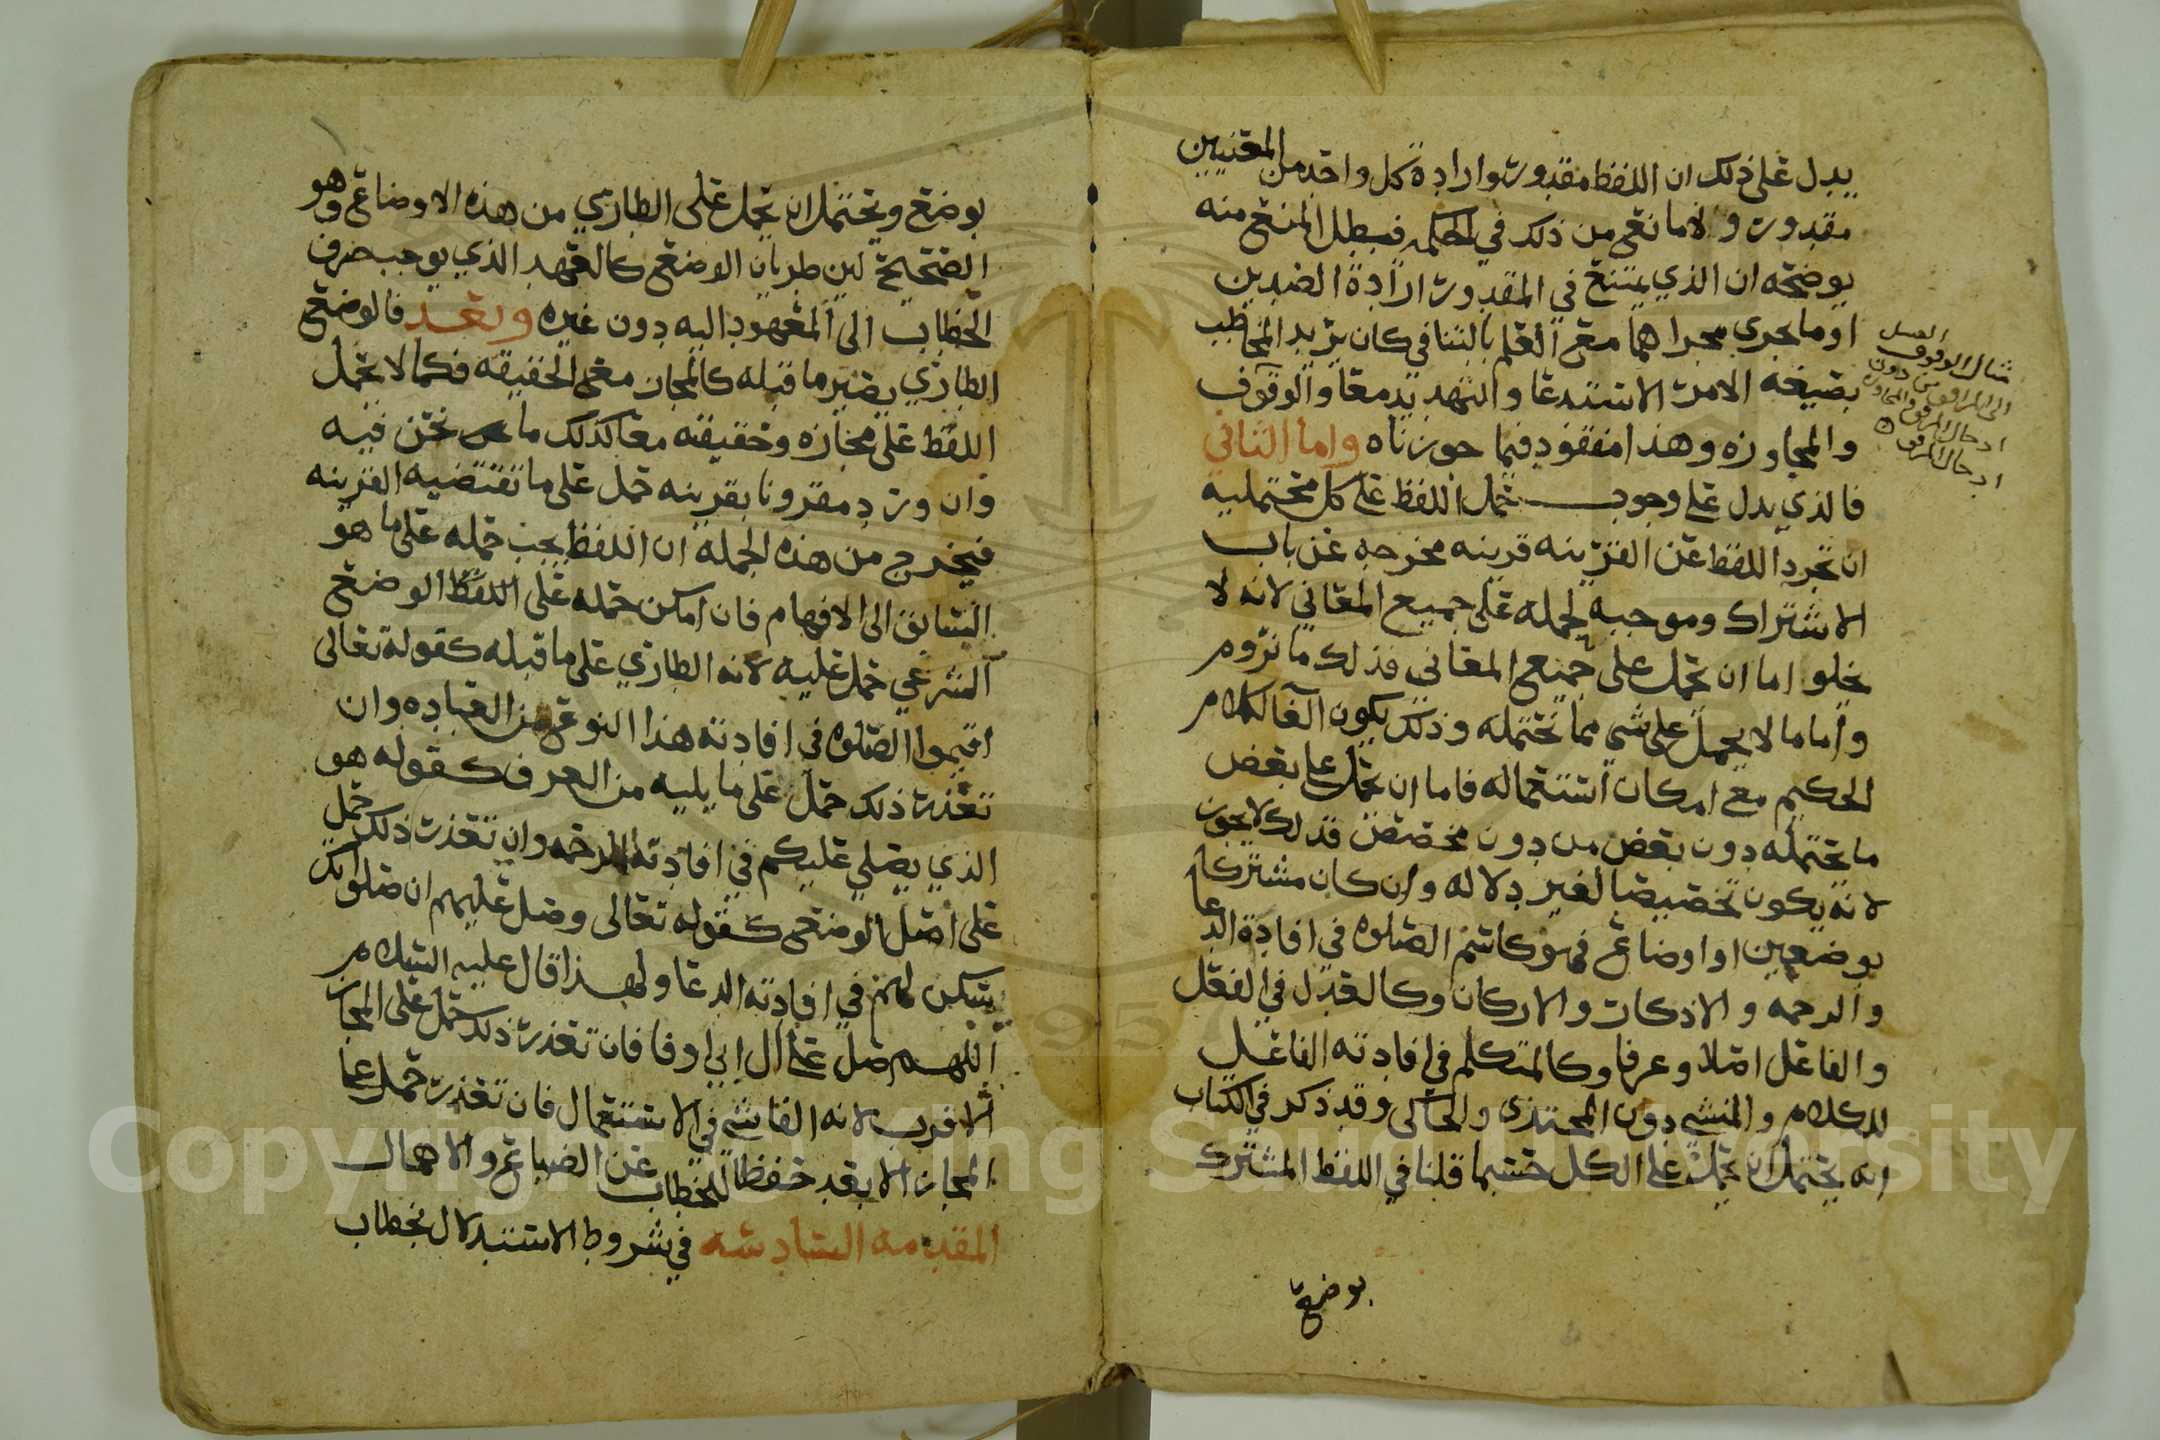 يدل على ذلك ان اللفظ مقدور وارادة كل واحد من المعنيين
مقدور ولا مانع من ذلك في الحكمه فبطل المنع منه
يوضحه ان الذي يمتنع في المقدور ارادة الضدين
او ما يجري مجراهما مع العلم بالتنافي كان يريد المخاطب
بصيغه الامر الاستدعا والتهديد معا والوقوف
والمجاوزه وهذا مفقود فيما جوزناه واما الثاني
فالذي يدل على وجوب حمل اللفظ على كل محتمليه
ان تجرد اللفظ عن القرينه قرينه مخرجه عن باب
الاشتراك وموجبه لحمله على جميع المعاني لانه لا
يخلو اما ان يحمل على جميع المعاني فذلك ما نروم
واما ما لا يحمل على شي مما يحتمله وذلك يكون الغا لكلام
الحكيم مع امكان استعماله فاما ان يحمل على بعض
ما يحتمله دون بعض من دون مخصص فذلك لا يجوز
لانه يكون تخصيصا لغير دلاله وان كان مشتركا
بوضعين او اوضاع فهو كاسم الصلوه في افادة الدعا
والرحمه والاذكار والاركان وكالعدل في الفعل
والفاعل اصلا وعرفا وكالمتكلم في افادته الفاعل
للكلام والمنشي دون المحتذي والحاكي وقد ذكر في الكتاب
انه يحتمل ان يحمل على الكل حسبما قلنا في اللفظ المشترك
بوضع
مثال الوقوف
الى المرافق من دون
ادخال المرفق
ادخال المرفق
بوضع ويحتمل ان يحمل على الطاري من هذه الاوضاع وهو
الصحيح لان طريان الوضع كالعهد الذي يوجب صرف
الخطاب الى المعهود اليه دون غيره وبعد فالوضع
الطاري يصير ما قبله كالمجاز مع الحقيقه فكما لا يحمل
اللفظ على مجازه وحقيقته معا كذلك ما نحن فيه
وان ورد مقرونا بقرينه حمل على ما تقتضيه القرينه
فيخرج من هذه الجمله ان اللفظ يجب حمله على ما هو
السابق الى الافهام فان امكن حمله على اللفظ الوضع
الشرعي حمل عليه لانه الطاري على ما قبله كقوله تعالى
اقيموا الصلوه في افادته هذا النوع من العباده وان
تعذر ذلك حمل على ما يليه من العرف كقوله هو
الذي يصلي عليكم في افادته الرحمه وان تعذر ذلك حمل
على اصل الوضع كقوله تعالى وصل عليهم ان صلواتك
سكن لهم في افادته الدعا ولهذا قال عليه السلام
اللهم صل على ال ابي اوفا فان تعذر ذلك حمل على المجاز
الاقرب لانه الفاشي في الاستعمال فان تعذر حمل على
المجاز الابعد حفظا للخطاب عن الضياع والاهمال
المقدمه السادسه في شروط الاستدلال بخطاب
Copyright © King Saud University